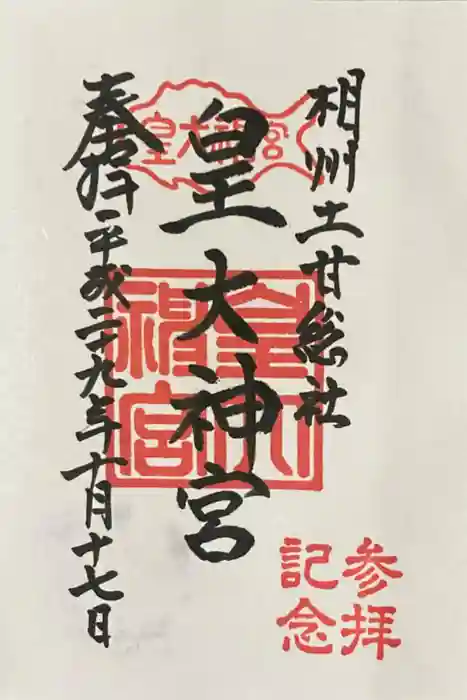 相州土甘総社
皇大神宮
奉拝
平成二十九年十月十七日
皇大神宮
皇大神宮
参拝
記念